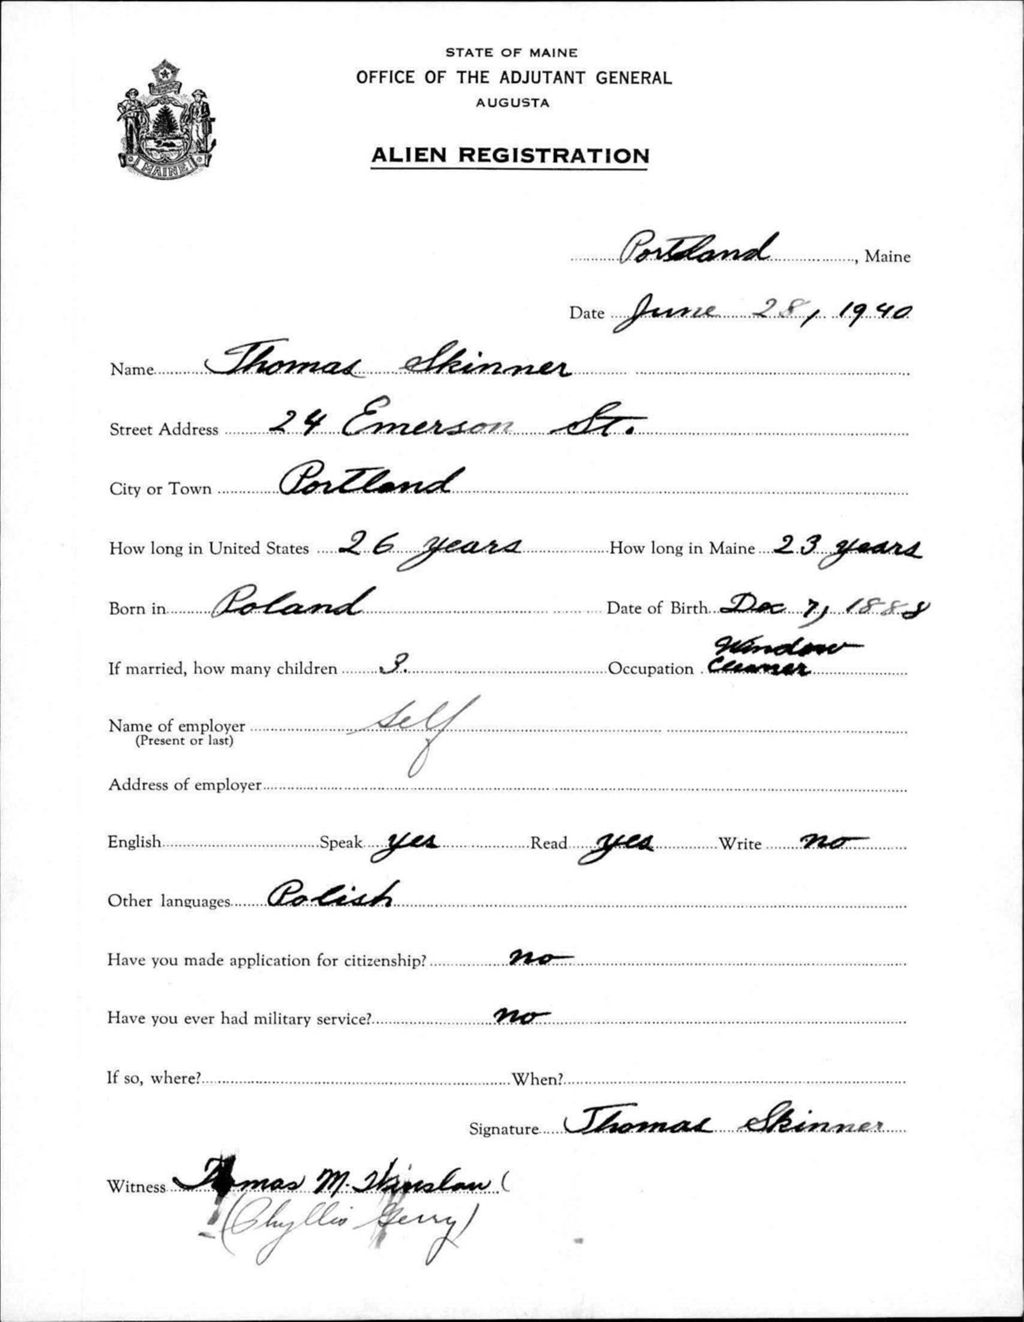 STATE OF MAINE
OFFICE OF THE ADJUTANT GENERAL
AUGUSTA
ALIEN REGISTRATION
MAINE
Portland, Maine
Date June 28, 1940
Name Thomas Skinner
Street Address 24 Emerson St.
City or Town Portland
How long in United States 26 years How long in Maine 23 years
Born in Poland Date of Birth Dec 7, 1888
If married, how many children 3. Occupation Window Cleaner
Name of employer Self
(Present or last)
Address of employer
English Speak yes Read yes Write no
Other languages Polish
Have you made application for citizenship? no
Have you ever had military service? no
If so, where? When?
Signature Thomas Skinner
Witness Thomas M. Winslow (
(Phyllis Gerry)